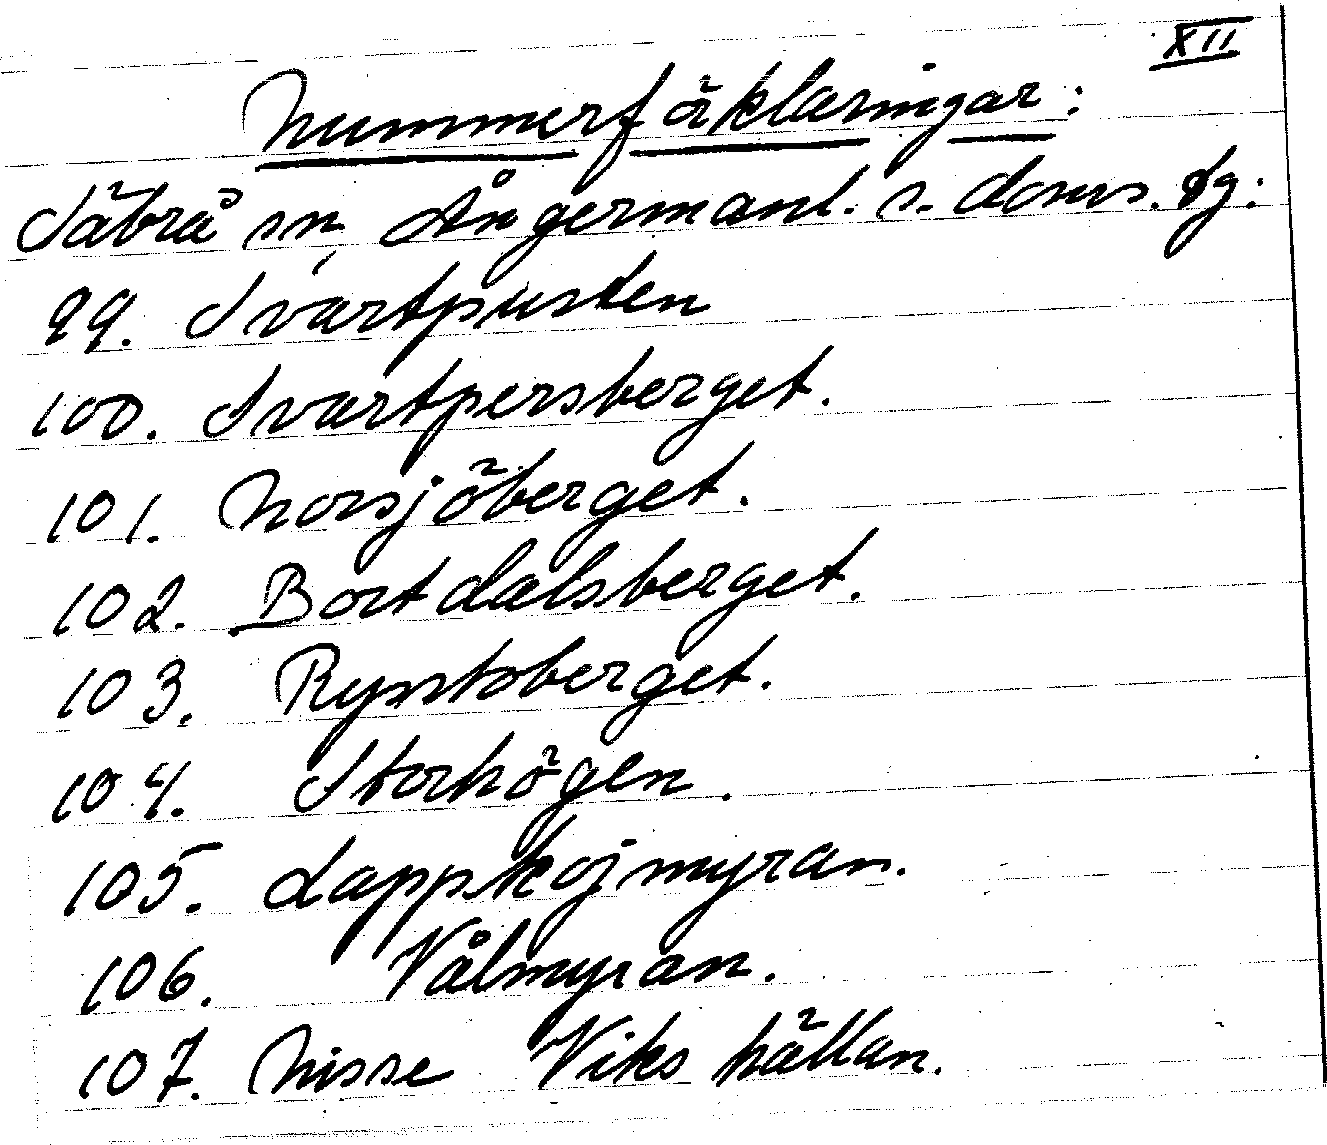 XII
Nummerförklaringar:
Säbrå sn, Ångermanl. s. doms. fg:
99. Svartpusten
100. Svartpersberget.
101. Norsjöberget.
102. Bortdalsberget.
103. Rysstoberget.
104. Storhögen.
105. Lappkojmyran.
106. Vålmyran.
107. Nisse Viks hällan.